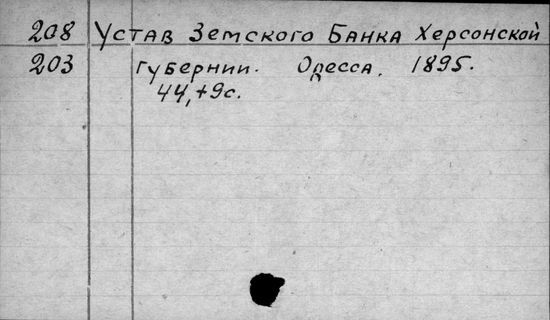 208 Устав Земского Банка Херсонской
203 губернии. Одесса, 1895.
44,+9с.